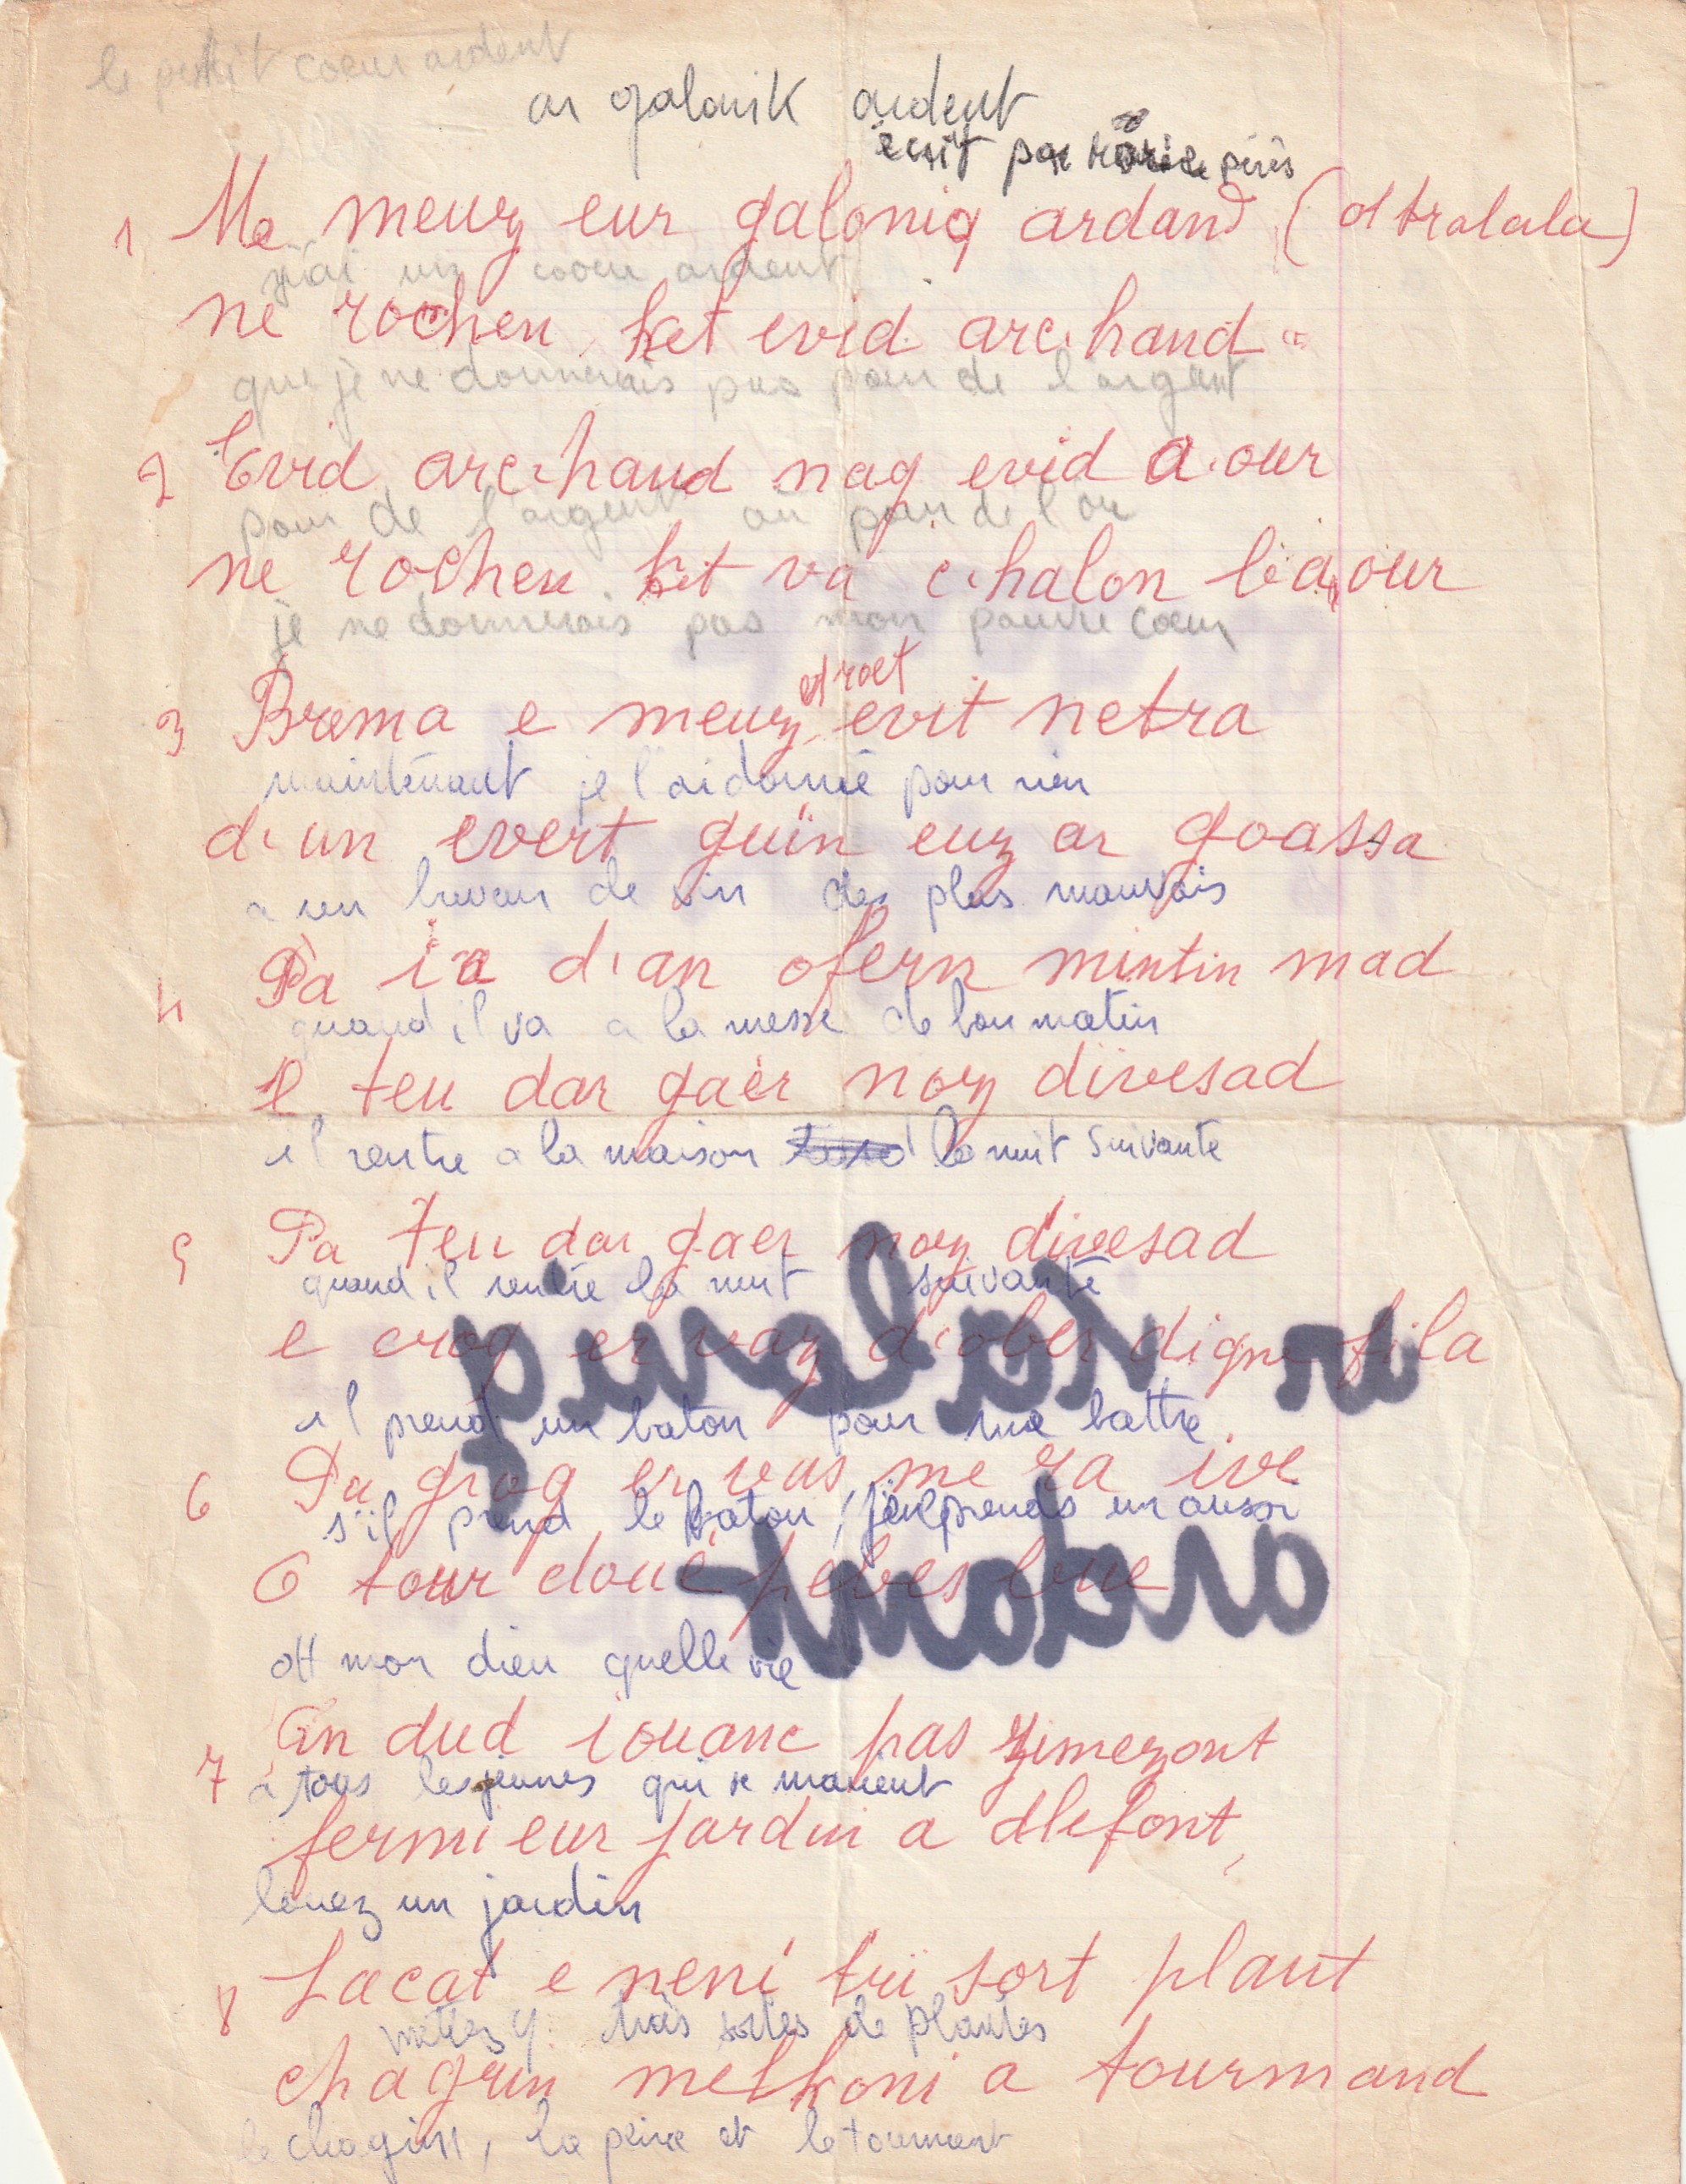 le petit coeur ardent
ar galonik ardent
écrit par péris
1 Me meuz eur galoniq ardand (oh tralala)
j'ai un coeur ardent
ne rochen ket evid arc'hand
que je ne donnerais pas pour de l'argent
2 Evid arc'hand nag evid aour
pour de l'argent ou pour de l'or
ne rochen ket va c'halon béaour
je ne donnerais pas mon pauvre coeur
3 Brema e meuz roet evit netra
maintenant je l'ai donné pour rien
d'un evert guin euz ar goassa
a un buveur de vin des plus mauvais
4 Pa ia d'an ofern mintin mad
quand il va a la messe de bon matin
E teu dar gaèr noz divesad
il rentre a la maison la nuit suivante
5 Pa teu dar gaer noz divesad
quand il rentre la nuit suivante
e crog er vaz d'ober digne fila
il prend un baton pour me battre
6 Pa grog er vas me ra ive
s'il prend le baton, j'en prends un aussi
O tour doué pebes bue
oH mon dieu quelle vie
7 An dud iouanc pas zimezont
a tous les jeunes qui se marient
fermi eur jardin a dlefont,
louez un jardin
8 Lacat e neni tri sort plant
mettez y trois sortes de plantes
chagrin melkoni a tourmand
le chagrin, la peine et le tourment